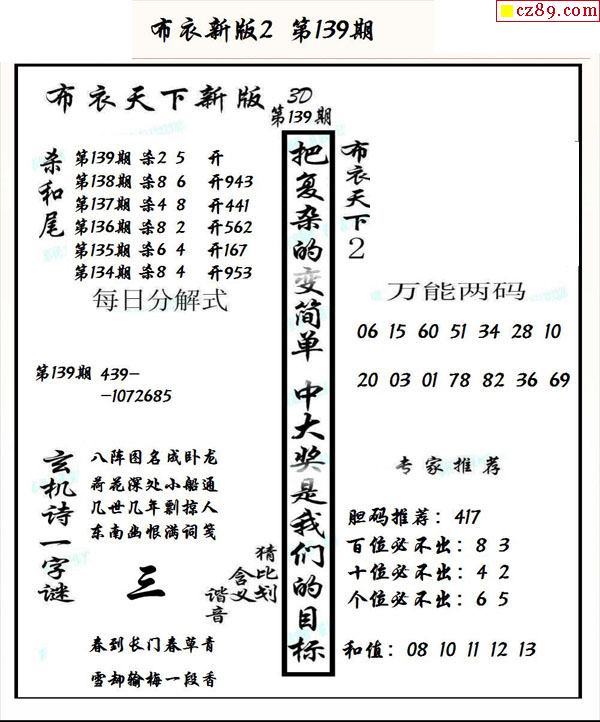 cz89.com
布衣新版2 第139期
布衣天下新版
3D
第139期
杀和尾
第139期 杀2 5 开
第138期 杀8 6 开943
第137期 杀4 8 开441
第136期 杀8 2 开562
第135期 杀6 4 开167
第134期 杀8 4 开953
每日分解式
第139期 439-
-1072685
玄机诗一字谜
八阵图名成卧龙
荷花深处小船通
几世几年剽掠人
东南幽恨满词笺
三
猜比划
含义
谐音
春到长门春草青
雪却输梅一段香
把复杂的变简单 中大奖是我们的目标
布衣天下2
万能两码
06 15 60 51 34 28 10
20 03 01 78 82 36 69
专家推荐
胆码推荐：417
百位必不出：8 3
十位必不出：4 2
个位必不出：6 5
和值：08 10 11 12 13